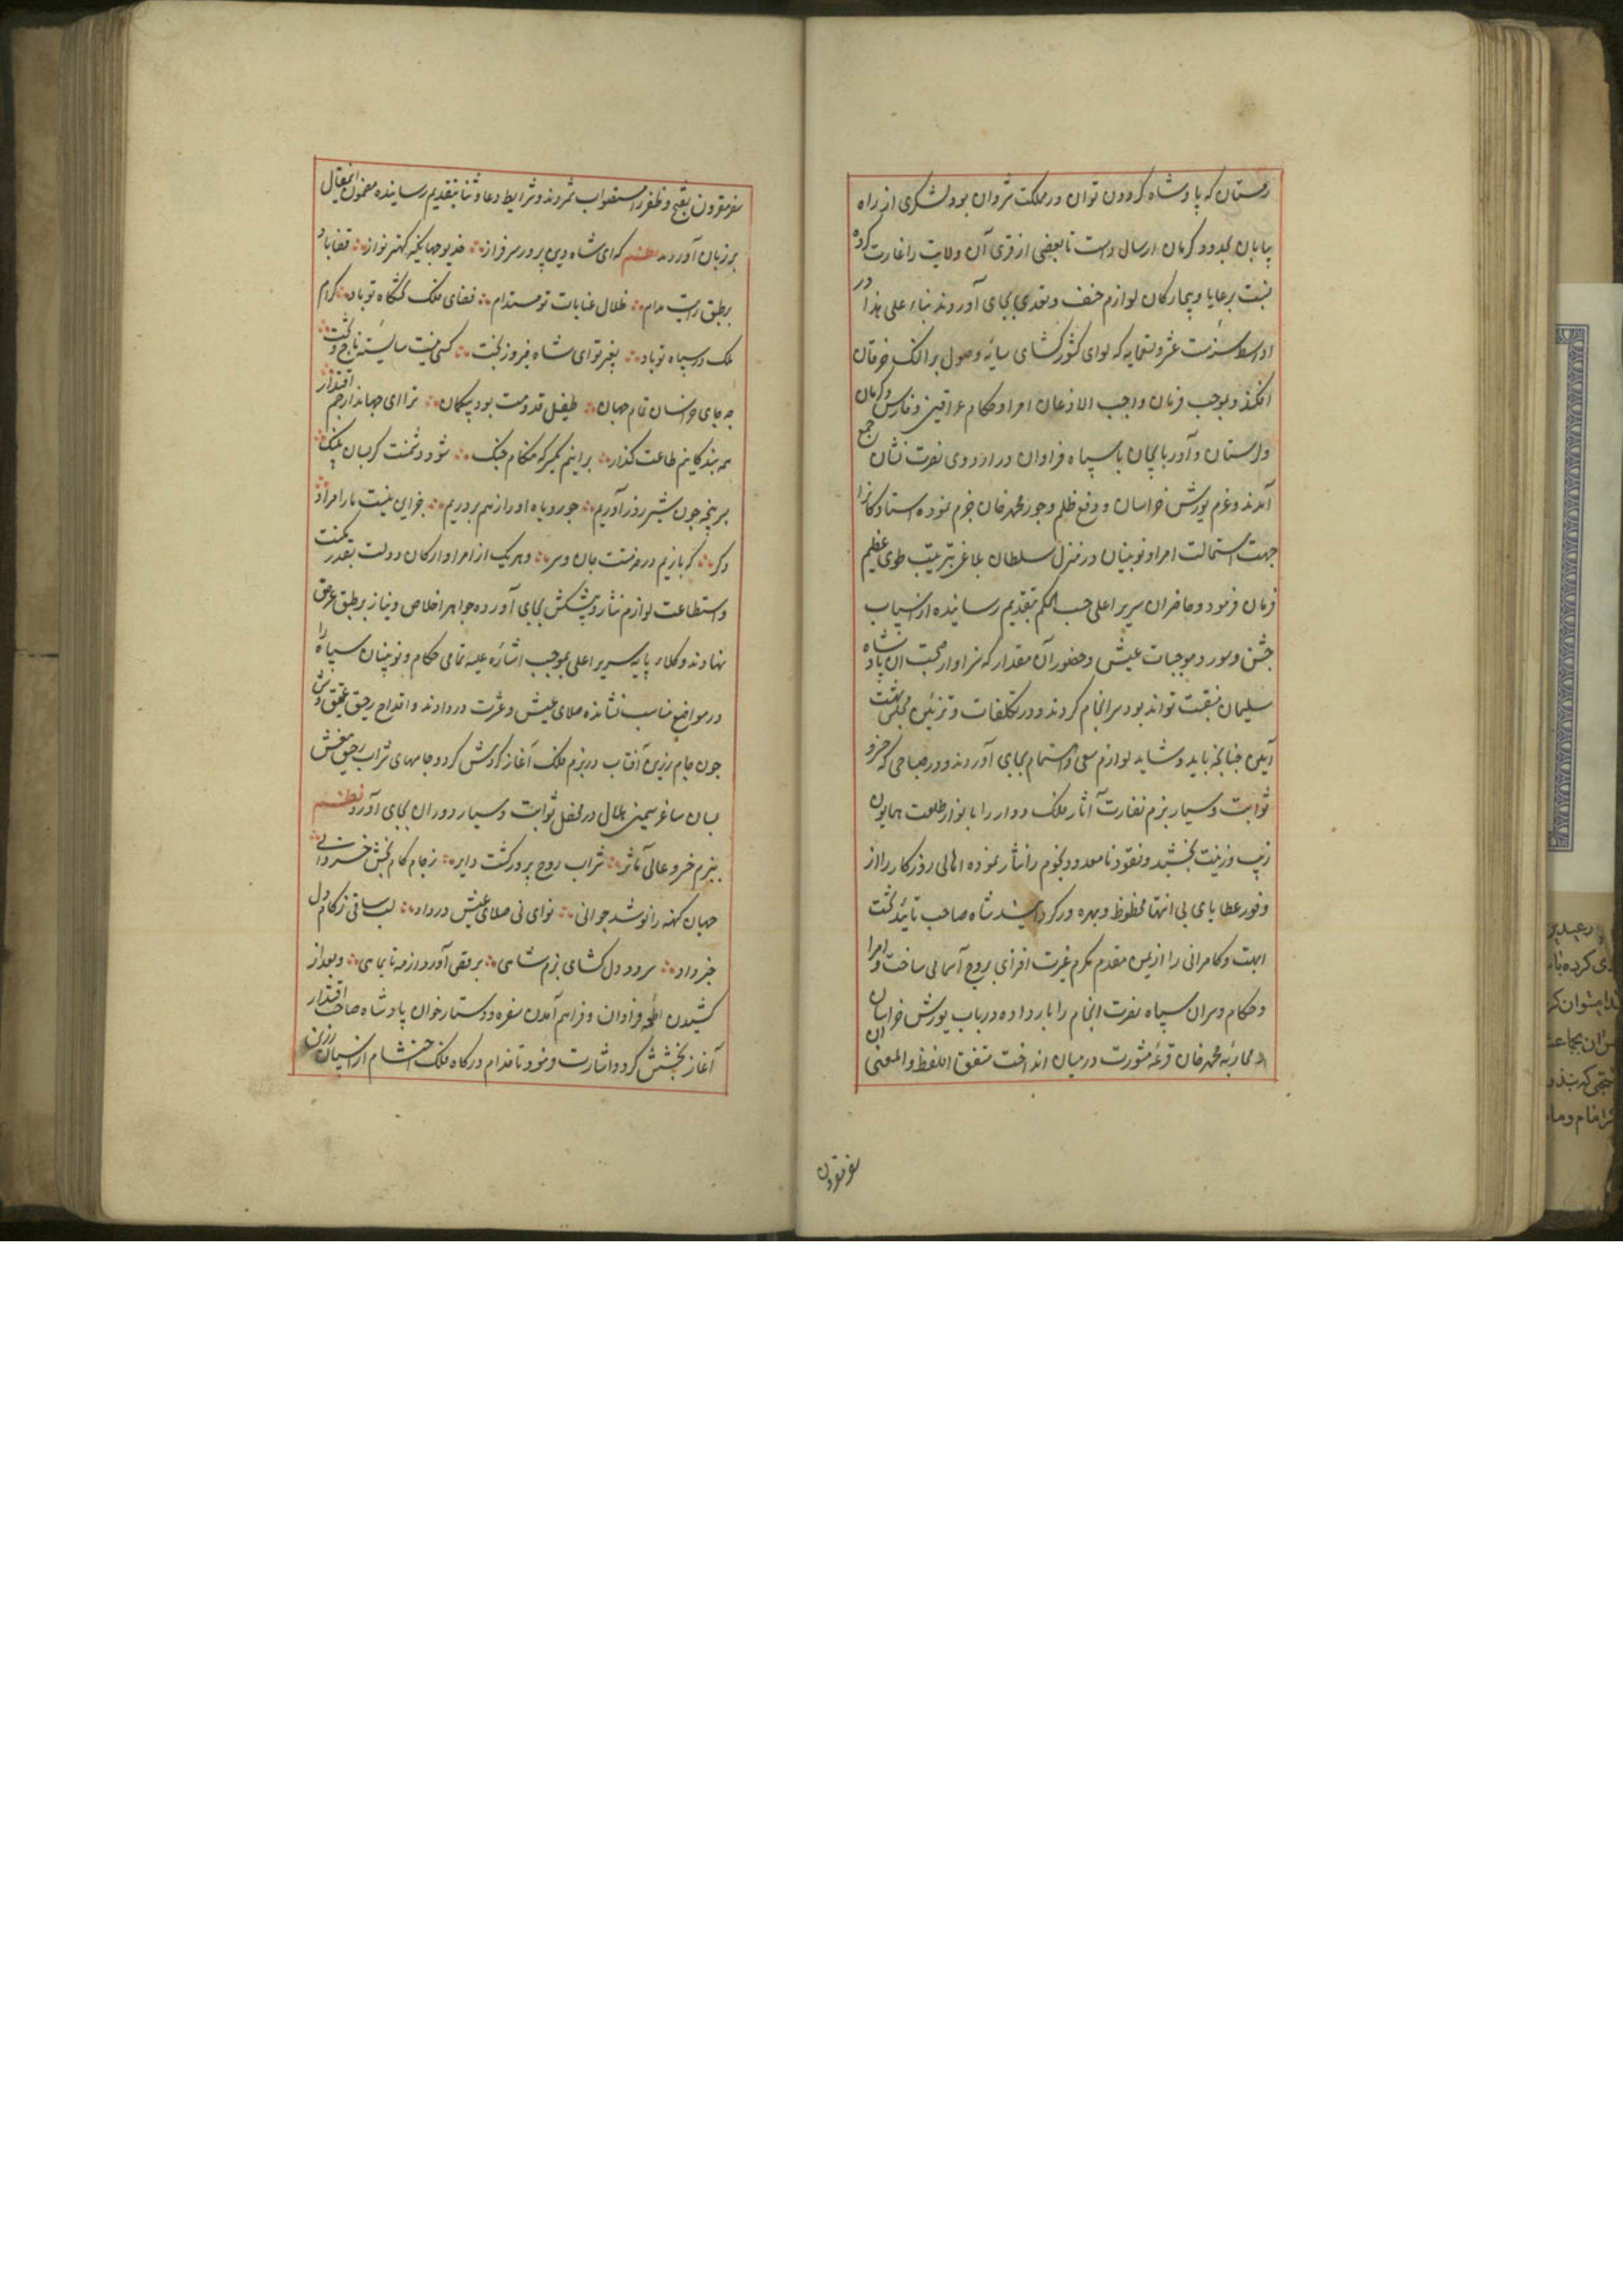 زمستان که پادشاه گردون توان در مملکت شروان بود لشکری از راه
بیابان بحدود کرمان ارسال داشت تا بعضی از قری آن ولایت را غارت کرده
نسبت برعایا و بیچارکان لوازم حیف و تعدی بجای آوردند بناء علی هذا در
اواسط سنه ست عشر و تسعمایه که لوای کشورکشای سایه وصول بر الکه خرقان
افکند و بموجب فرمان واجب الاذعان امرا و حکام عراقین و فارس و کرمان
و لرستان و آذربایجان با سپاه فراوان در اردوی نصرت نشان جمع
آمدند و عزم یورش خراسان و دفع ظلم و جور محمد خان جزم نموده استادکانرا
جهت استمالت امرا و نوینان در منزل سلطان بلاغی بترتیب طوی عظیم
فرمان فرمود و حاضران سریر اعلی حسب الحکم بتقدیم رسانیده از اسباب
جشن و سور و موجبات عیش و حضور آن مقدار که سزاوار صحبت آن پادشاه
سلیمان منقبت تواند بود سرانجام کردند و در تکلفات و تزئین مجلس بهشت
آیین چنانچه باید و شاید لوازم سعی و اهتمام بجای آوردند و در صباحی که خسرو
ثوابت و سیار بزم نضارت آثار فلک دوار را بانوار طلعت همایون
زیب و زینت بخشید و نقود نامعدود نجوم را نثار نموده اهالی روزکار را از
وفور عطایای بی انتها محظوظ و بهره ور کردانید شاه صاحب تایید تخت
ابهت و کامرانی را از یمن مقدم مکرم غیرت افزای بروج آسمانی ساخت و امرا
و حکام و سران سپاه نصرت انجام را بار داده در باب یورش خراسان
و محاربه محمد خان قرعه مشورت در میان انداخت متفق اللفظ و المعنی آن
سفر مقرون
سفر مقرون بفتح و ظفر را مستصواب شمردند و شرایط دعا و ثنا بتقدیم رسانیده مضمون این مقال
بر زبان آوردند نظم که ای شاه دین پرور سرفراز خدیو جهانگیر کهتر نواز قضا باد
بر طبق رایت مدام ظلال عنایات تو مستدام فضای فلک تختگاه تو باد کرام
ملک در سپاه تو باد بغیر تو ای شاه فیروز بخت کسی نیست شایسته تاج و تخت
چه جای خراسان تمام جهان طفیل قدومت بود بیکمان ترا ای جهاندار جم اقتدار
همه بندکانیم طاعت کذار برانیم یکسر که هنکام جنک شود دشمنت کر بسان پلنک
بر پنجه چون شیر زور آوریم چو روباه او را ز هم بردریم جز این نیست ما را مراد
دکر که بازیم در خدمتت جان و سر و هر یک از امرا و ارکان دولت بقدر مکنت
و استطاعت لوازم نثار و پیشکش بجای آورده جواهر اخلاص و نیاز بر طبق عرض
نهادند و وکلاء پایه سریر اعلی بموجب اشاره علیه تمامی حکام و نوینان سپاه را
در مواضع مناسب نشانده صلای عیش و عشرت در دادند و اقداح رحیق عقیق وش
چون جام زرین آفتاب در بزم فلک آغاز کردش کرد و جامهای شراب رحیق منش
بسان ساغر سیمین هلال در محفل ثوابت و سیار دوران بجای آورد نظم
ببزم خسرو عالی مآثر شراب روح پرور کشت دایر ز جام کام بخش خسروانی
جهان کهنه را نو شد جوانی نوای نی صلای عیش در داد لب ساقی ز کام دل
خبر داد سرود دل کشای بزم شاهی برقص آورد از مه تا بماهی و بعد از
کشیدن اطعمه فراوان و فراهم آمدن سفره و دستار خوان پادشاه صاحب اقتدار
آغاز بخشش کرد و اشارت فرمود تا خدام درکاه فلک احتشام از اسبان زرین